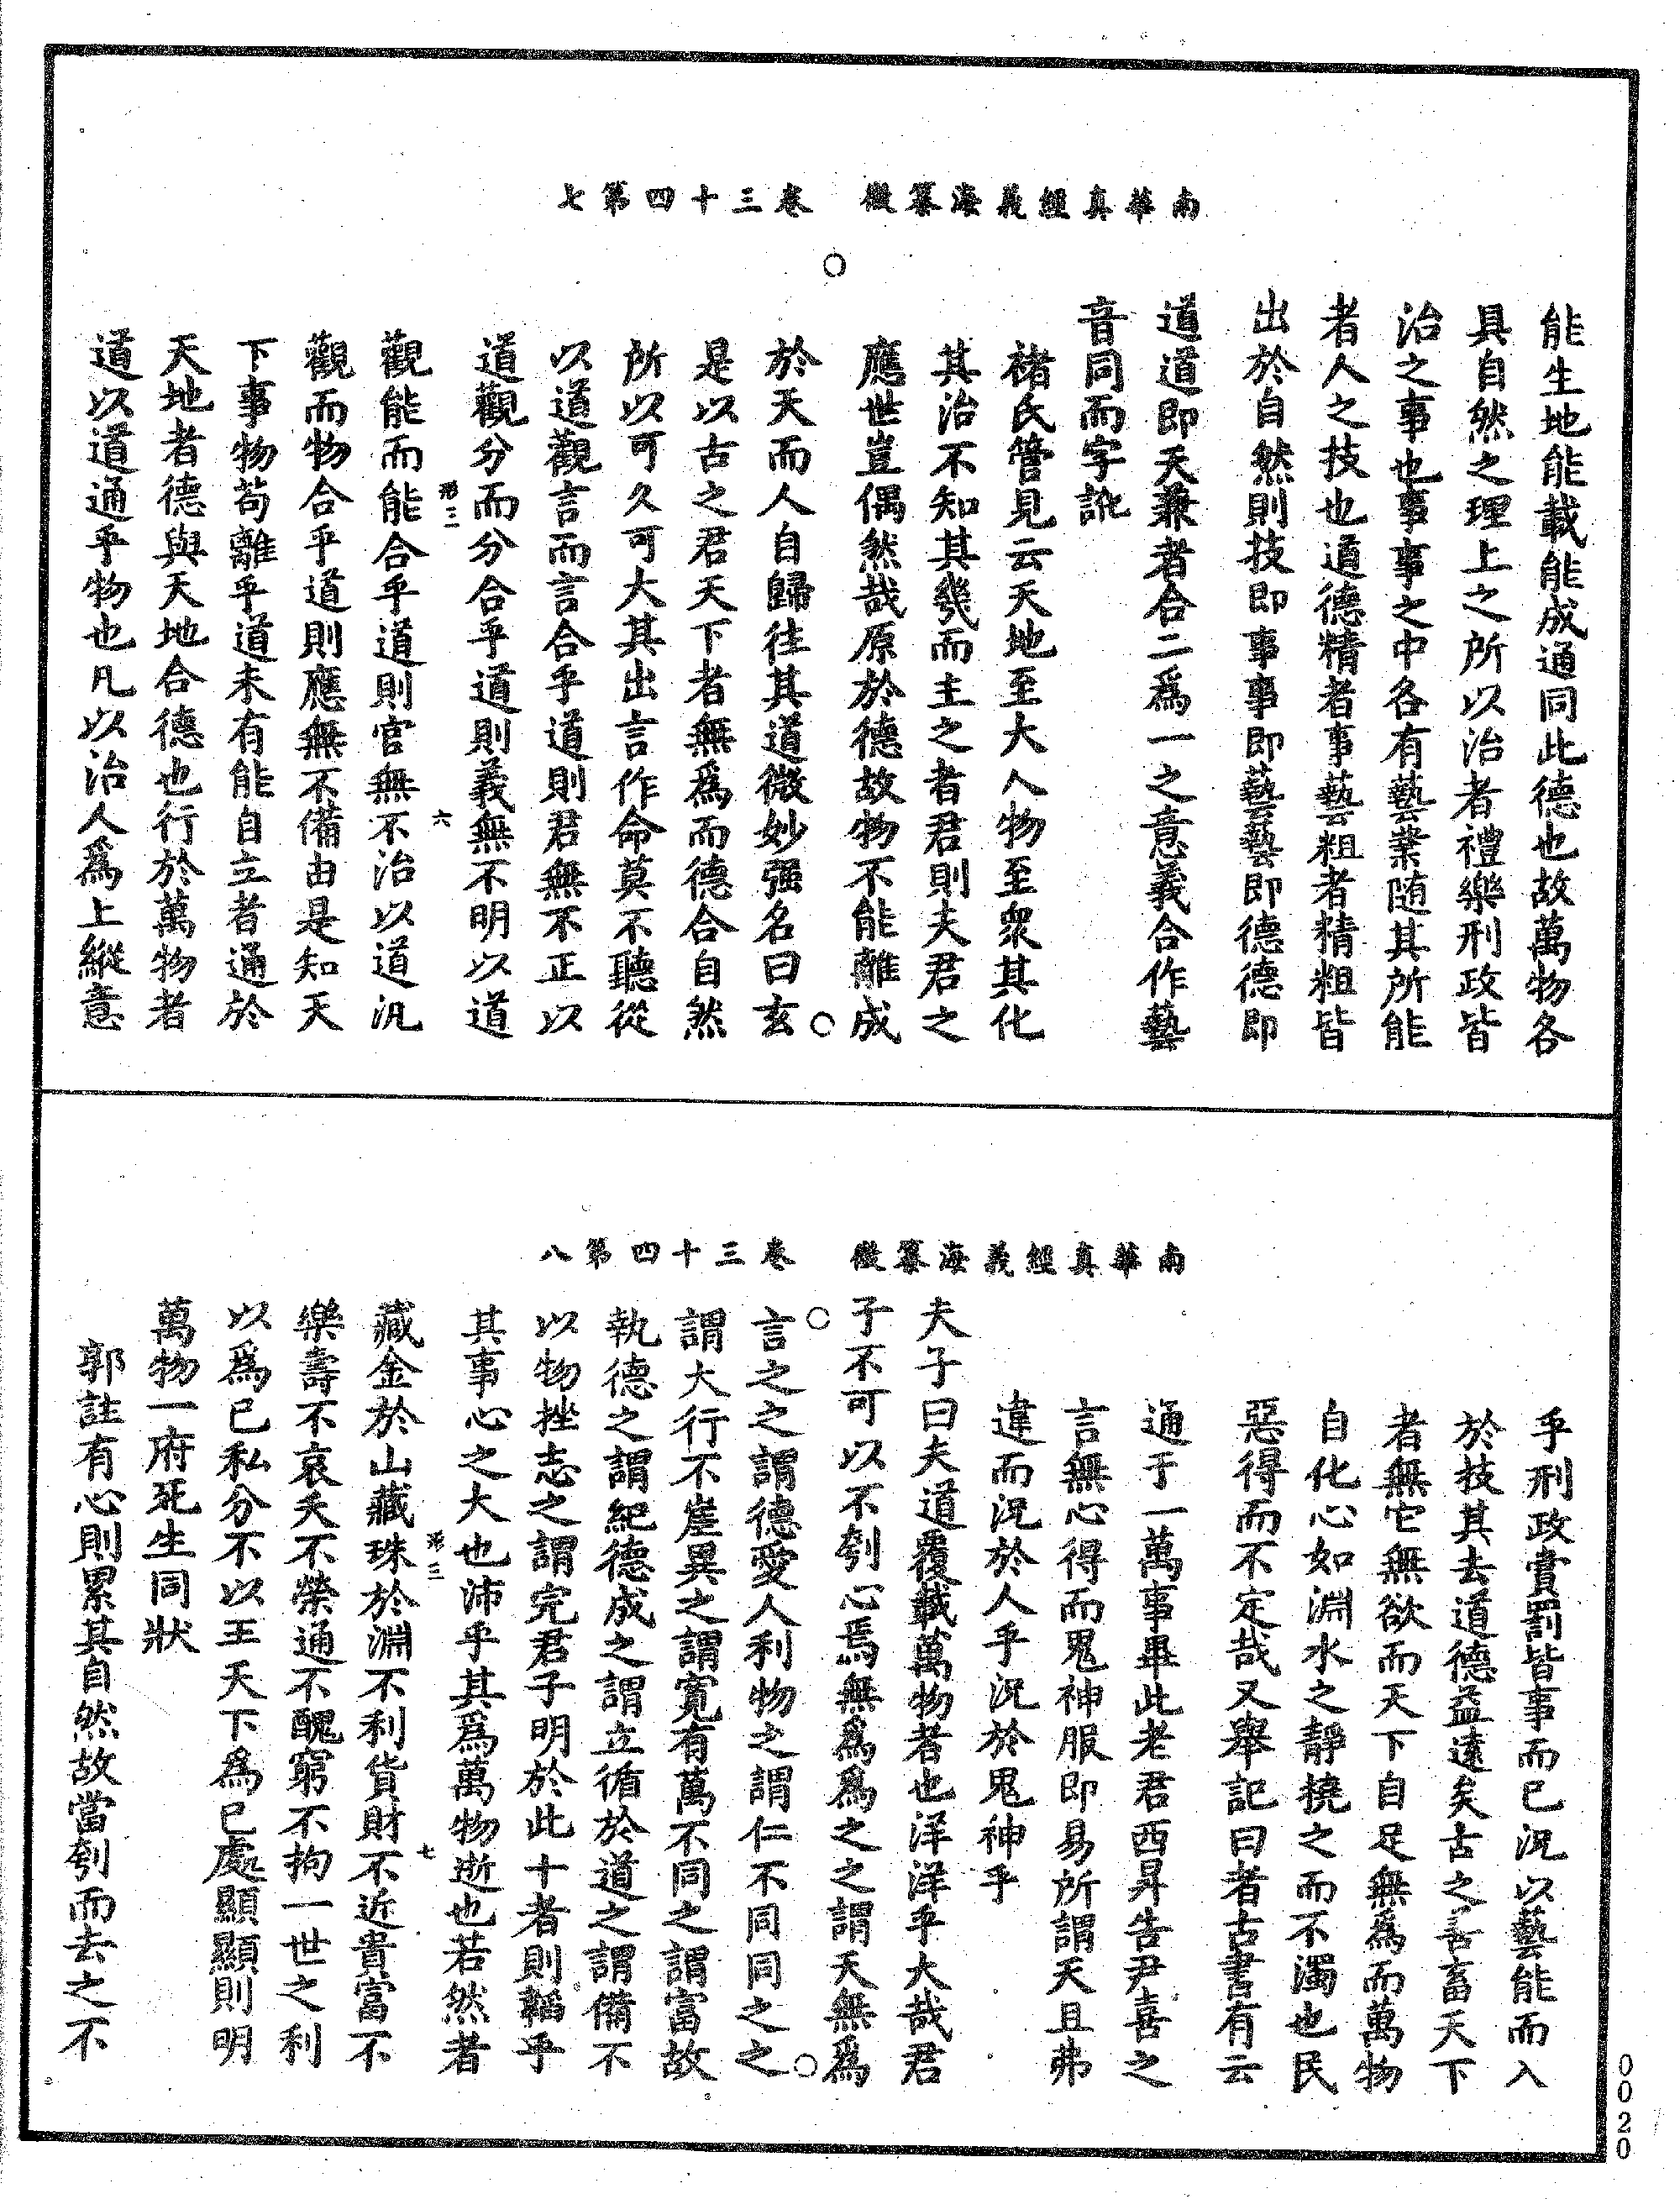 南華真經義海纂微　卷三十四第七
能生地能載能成通同此德也故萬物各
具自然之理上之所以治者禮樂刑政皆
治之事也事事之中各有藝業随其所能
者人之技也道德精者事藝粗者精粗皆
出於自然則技即事事即藝藝即德德即
道道即天兼者合二爲一之意義合作藝
音同而字訛
褚氏管見云天地至大人物至衆其化
其治不知其幾而主之者君則夫君之
應世豈偶然哉原於德故物不能離成
於天而人自歸往其道微妙强名曰玄
是以古之君天下者無爲而德合自然
所以可久可大其出言作命莫不聽從
以道觀言而言合乎道則君無不正以
道觀分而分合乎道則義無不明以道
形三　六
觀能而能合乎道則官無不治以道汎
觀而物合乎道則應無不備由是知天
下事物苟離乎道未有能自立者通於
天地者德與天地合德也行於萬物者
道以道通乎物也凡以治人爲上縱意
南華真經義海纂微　卷三十四第八
乎刑政賞罰皆事而已況以藝能而入
於技其去道德益遠矣古之善畜天下
者無它無欲而天下自足無爲而萬物
自化心如淵水之靜撓之而不濁也民
惡得而不定哉又舉記曰者古書有云
通于一萬事畢此老君西昇告尹喜之
言無心得而鬼神服即易所謂天且弗
違而況於人乎況於鬼神乎
夫子曰夫道覆載萬物者也洋洋乎大哉君
子不可以不刳心焉無爲爲之之謂天無爲
言之之謂德愛人利物之謂仁不同同之之
謂大行不崖異之謂寬有萬不同之謂富故
執德之謂紀德成之謂立循於道之謂備不
以物挫志之謂完君子明於此十者則韜乎
其事心之大也沛乎其爲萬物逝也若然者
形三　七
藏金於山藏珠於淵不利貨財不近貴富不
樂壽不哀夭不榮通不醜窮不拘一世之利
以爲已私分不以王天下爲已處顯顯則明
萬物一府死生同狀
郭註有心則累其自然故當刳而去之不
0020